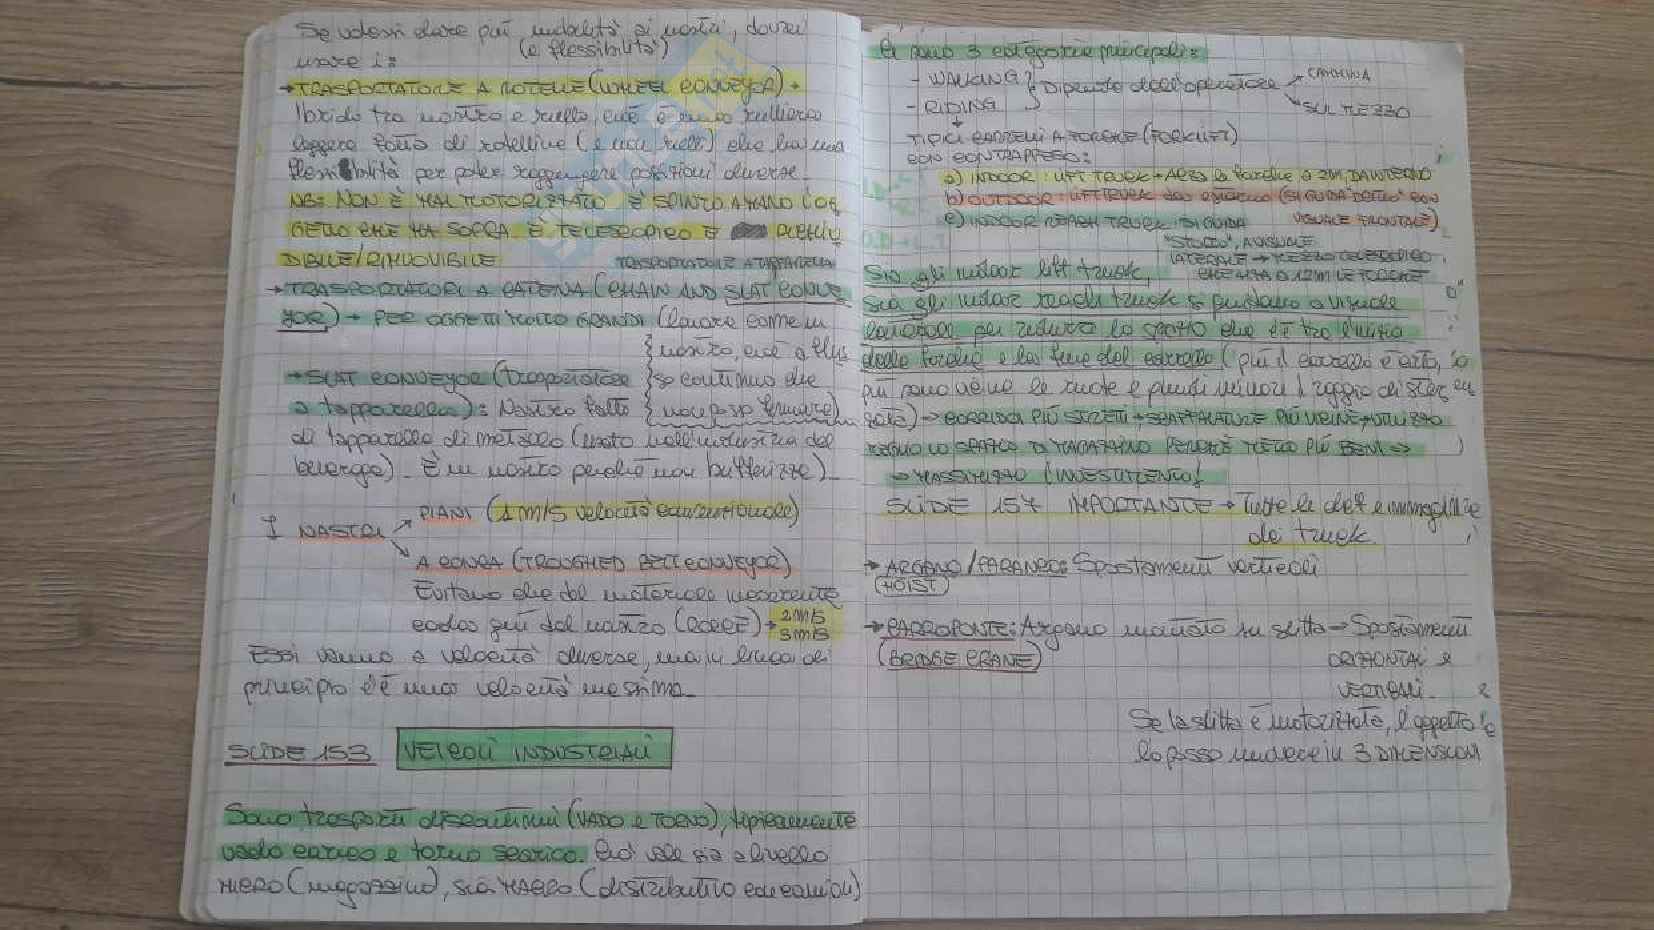 Se volessi dare più modalità ai nastri, dovrei
(e flessibilità)
usare i:
→ TRASPORTATORE A ROTELLE (WHEEL CONVEYOR) →
Ibrido tra nastro e rullo, cioè è una rulliera
leggera fatta di rotelline (e non rulli) che ha una
flessibilità per poter raggiungere posizioni diverse.
NB: NON È MAI MOTORIZZATO È SPINTO A MANO L'OG
GETTO CHE HA SOPRA. È TELESCOPICO E
DIBILE/RIMUOVIBILE
TRASPORTATORE A TAPPARELLA
→ TRASPORTATORI A CATENA (CHAIN AND SLAT CONVE
YOR) → PER OGGETTI MOLTO GRANDI (lavora come un
nastro, cioè a flus
→ SLAT CONVEYOR (Trasportatore
so continuo che
a tapparella): Nastro fatto
non posso fermare)
di tapparelle di metallo (usato nell'industria del
beverage). È un nastro perché non bufferizza).
I NASTRI
PIANI (1 m/s velocità convenzionale)
A CONCA (TROUGHED BELT CONVEYOR)
Evitano che del materiale incoerente
cada giù dal nastro →
2m/s
3m/s
Essi vanno a velocità diverse, ma in linea di
principio c'è una velocità massima.
SLIDE 153 VEICOLI INDUSTRIALI
Sono trasporti discontinui (VADO E TORNO), tipicamente
vado carico e torno scarico. Ciò vale sia a livello
MICRO (magazzino), sia MACRO (distributivo con camion)
Ci sono 3 categorie principali:
- WALKING
- RIDING
Dipende dall'operatore
CAMMINA
SUL MEZZO
TIPICI CARRELLI A FORCHE (FORKLIFT)
CON CONTRAPPESO:
a) INDOOR: LIFT TRUCK → Alza le forche a 2m, DA INTERNO
b) OUTDOOR: LIFT TRUCK da esterno (SI GUIDA DRITTO CON
VISUALE FRONTALE)
c) INDOOR REACH TRUCK: SI GUIDA
"STORTO", A VISUALE
LATERALE → MEZZO TELESCOPICO
CHE ALZA A 12m LE FORCHE
Sia gli indoor lift truck,
sia gli indoor reach truck si guidano a visuale
laterale per ridurre lo spazio che c'è tra l'inizio
delle forche e la fine del carrello (più il carrello è corto,
più sono vicine le ruote e quindi minore il raggio di ster
zata) → CORRIDOI PIÙ STRETTI → SCAFFALATURE PIÙ VICINE → UTILIZZO
MEGLIO LO SPAZIO DI MAGAZZINO PERCHÉ METTO PIÙ BENI ⇒
→ MASSIMIZZO L'INVESTIMENTO!
SLIDE 157 IMPORTANTE → Tutte le def e immagini
de truck
→ ARGANO/PARANCO: Spostamenti verticali
(HOIST)
→ CARROPONTE: Argano montato su slitta → Spostamenti
(BRIDGE CRANE)
ORIZZONTALI e
VERTICALI.
Se la slitta è motorizzata, l'oggetto
lo posso muovere in 3 DIMENSIONI